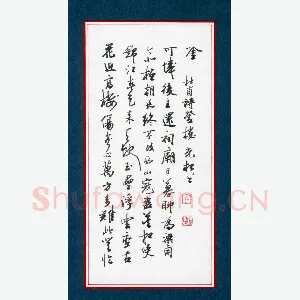 花近高樓傷客心萬方多難此登臨
錦江春色來天地玉壘浮雲變古
今北極朝廷終不改西山寇盗莫相侵
可憐後主還祠廟日暮聊為梁甫
吟 杜甫詩登樓